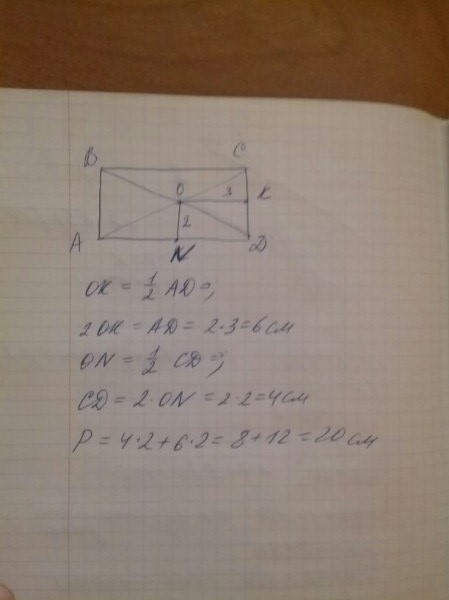 B C
O 3 K
2
A N D
OK = 1/2 AD⇒;
2OK = AD = 2·3=6см
ON = 1/2 CD⇒;
CD = 2·ON = 2·2=4см
P = 4·2+6·2= 8+12=20см